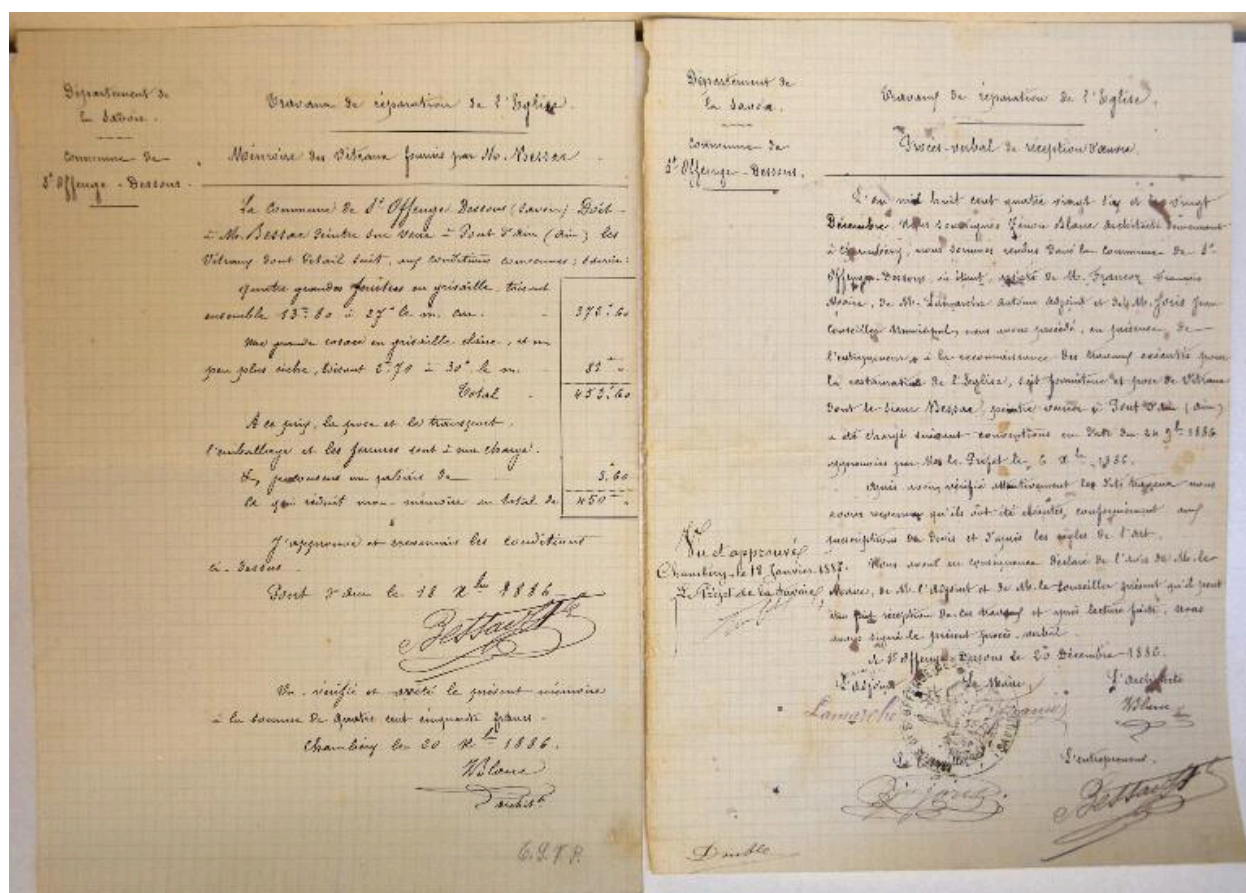 Département de
la Savoie.
Commune de
St Offenge-Dessous.
Travaux de réparation de l'Eglise.
Mémoire des Vitraux fournis par Mr. Bessac
La Commune de St Offenge Dessous (Savoie) Doit
à Mr. Bessac Peintre sur verre à Pont d'Ain (Ain) les
Vitraux dont détail suit, aux conditions convenues; Savoir:
quatre grandes fenêtres en grisaille, faisant
ensemble 13m80 à 27f le m. car. 372f60
Une grande rosace en grisaille claire, et un
peu plus riche, faisant 2m70 à 30f le m. 81f "
Total 453f60
A ce prix, la pose et le transport,
l'emballage et les ferrures sont à ma charge.
un rabais de 3f60
ce qui réduit mon mémoire au total de 450f "
J'approuve et reconnais les conditions
ci-dessus
Pont d'Ain le 18 Xbre 1886
Bessac
Vu, vérifié et arrêté le présent mémoire
à la somme de quatre cent cinquante francs.
Chambéry le 20 Xbre 1886.
Blanc
archite
Département de
la Savoie.
Commune de
St Offenge-Dessous.
Travaux de réparation de l'Eglise.
Procès-verbal de réception d'œuvre.
L'an mil huit cent quatre vingt six et le vingt
Décembre Nous soussigné Zénon Blanc architecte demeurant
à Chambéry, nous sommes rendus dans la commune de St
Offenge-Dessous, où étant, assisté de M. Francoz François
Maire, de M. Lamarche Antoine adjoint et de M. Joris Jean
Conseiller Municipal, nous avons procédé, en présence de
l'entrepreneur, à la reconnaissance des travaux exécutés pour
la restauration de l'Eglise, soit fourniture et pose de Vitraux
dont le sieur Bessac, peintre verrier à Pont d'Ain (Ain)
a été chargé suivant conventions en date du 24 9bre 1886
approuvées par Mr le Préfet le 6 Xbre 1886.
Après avoir vérifié attentivement les dits travaux nous
avons reconnu qu'ils ont été exécutés, conformément aux
prescriptions du Devis et d'après les règles de l'art.
Nous avons en conséquence déclaré de l'avis de Mr le
Maire, de Mr l'Adjoint et de Mr le Conseiller présent qu'il peut
être fait réception de ces travaux et après lecture faite, nous
avons signé le présent procès-verbal
à St Offenge-Dessous le 20 Décembre 1886.
L'adjoint Le Maire L'architecte
Lamarche Blanc
Le Conseiller L'entrepreneur
Joris Bessac
Vu et approuvé
Chambéry, le 18 Janvier 1887.
Le Préfet de la Savoie,
Double